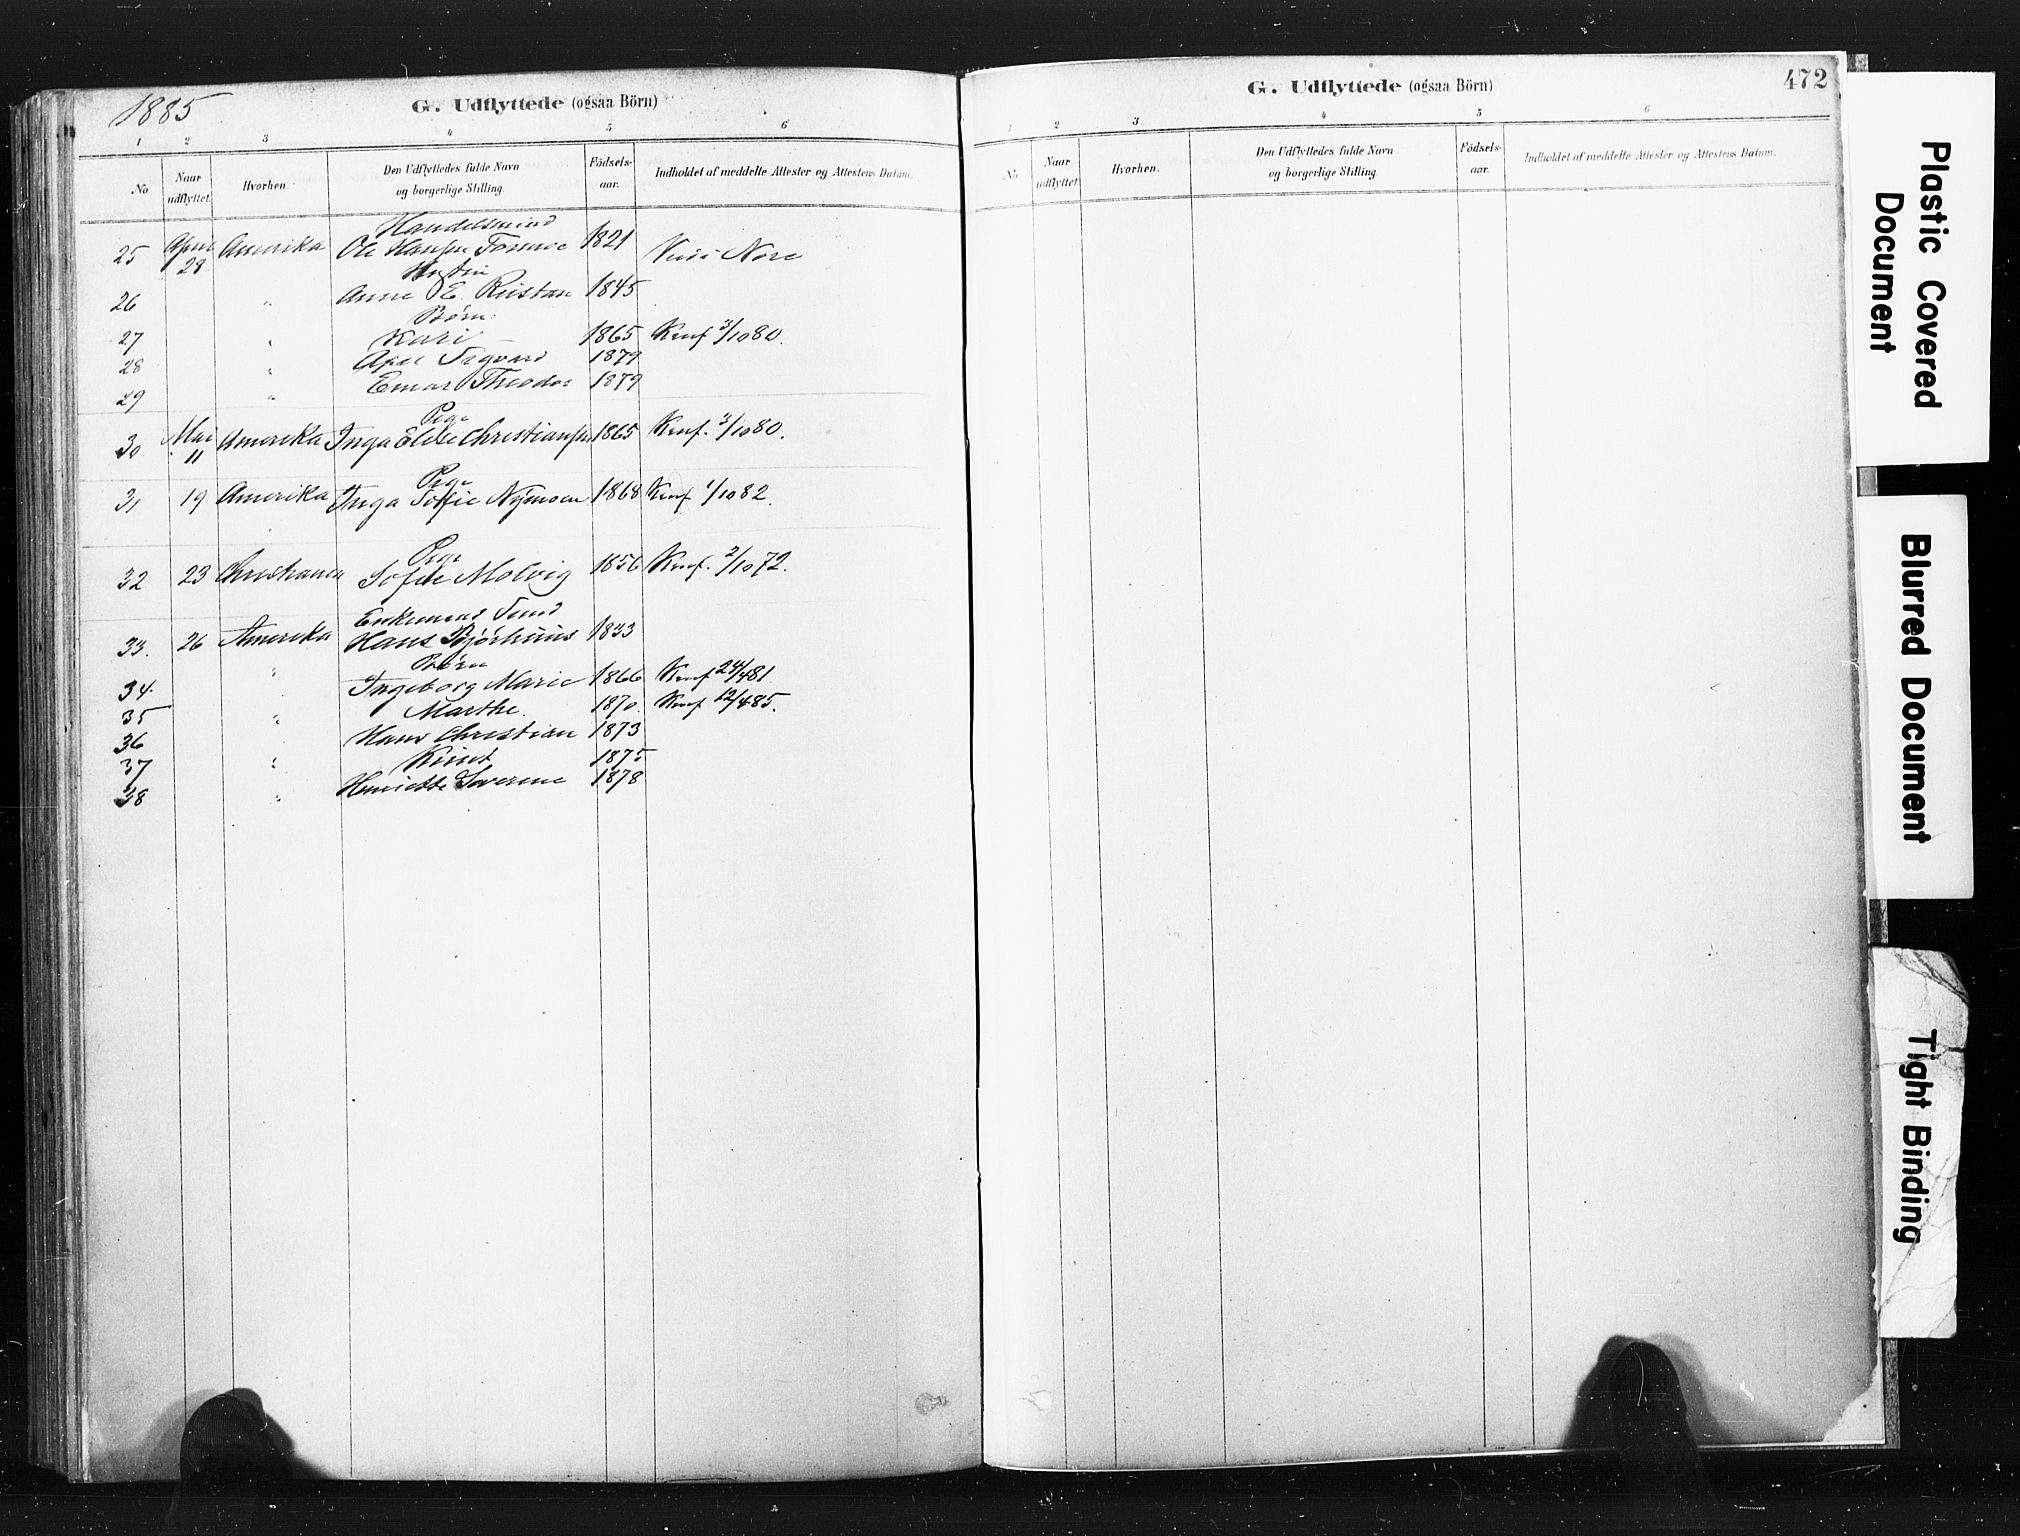 1885
G. Udflyttede (ogsaa Börn)
1 2 3 4 5 6
No Naar udflyttet. Hvorhen. Den Udflyttedes fulde Navn og borgerlige Stilling. Födsels-aar. Indholdet af meddelte Attester og Attestens Datum.
Handelsmand
25 April 28 Amerika Ole Hansen 1821 Nore
Hustru
26 " Anne E. Rustan 1845
Børn:
27 " Kari 1865 Konf 3/10 80.
28 " Axel Sigvard 1879
29 " Einar Theodor 1879
Pige
30 Mai 11 Amerika Inga Elise Christiansen 1865 Konf. 3/10 80.
Pige
31 19 Amerika Inga Sofie Nymoen 1868 Konf 1/10 82.
Pige
32 23 Christiania Sofie Molvig 1856 Konf. 2/10 72.
Enkemand
33. 26 Amerika Hans Bjørhuus 1833
Børn
34. " Ingeborg Marie 1866 Konf 24/4 81
35 " Marthe 1870. Konf 12/4 85.
36 Hans Christian 1873
37 " Knud 1875
38 " Henriette Severine 1878
G. Udflyttede (ogsaa Börn)
472
1 2 3 4 5 6
No Naar udflyttet. Hvorhen. Den Udflyttedes fulde Navn og borgerlige Stilling. Födsels-aar. Indholdet af meddelte Attester og Attestens Datum.
Plastic Covered
Document
Blurred Document
Tight Binding